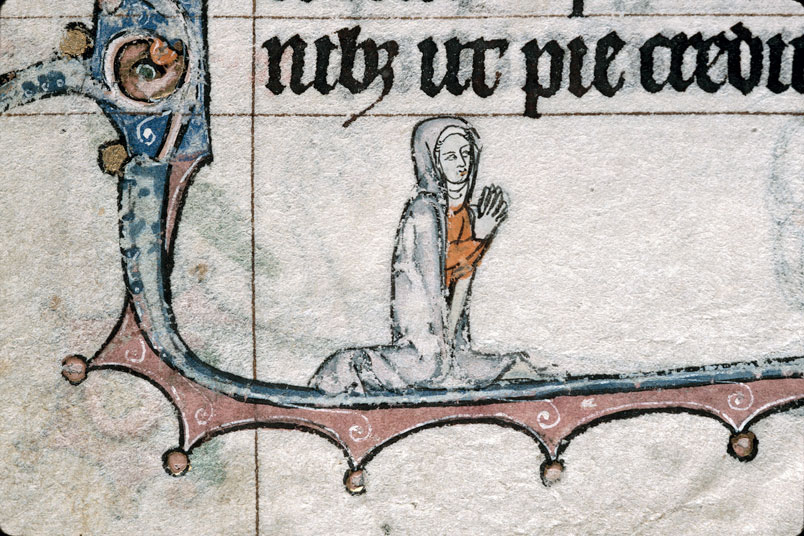 ntbꝫ ut pie credu